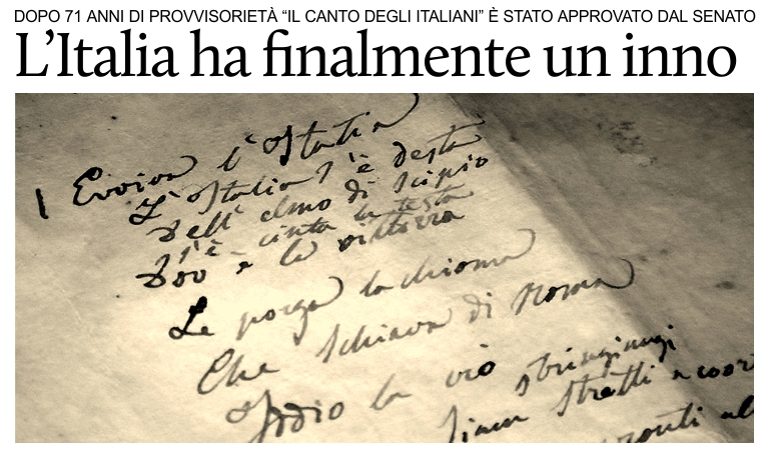 DOPO 71 ANNI DI PROVVISORIETÀ “IL CANTO DEGLI ITALIANI” È STATO APPROVATO DAL SENATO
L’Italia ha finalmente un inno
Evviva l'Italia
L'Italia s'è desta
Dell' elmo di Scipio
S'è cinta la testa
Dov' è la vittoria
Le porga la chioma
Che schiava di Roma
Iddio la creò
stringiamci
Siam stretti a coor
pronti all